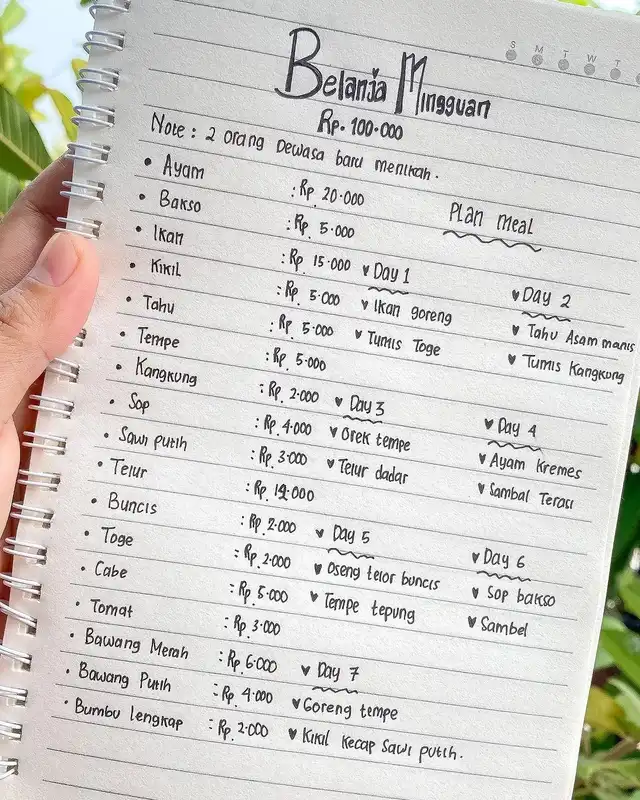 S M T W T
Belanja Mingguan
Rp. 100.000
Note : 2 orang Dewasa baru menikah.
• Ayam : Rp. 20.000
• Bakso : Rp. 5.000
• Ikan : Rp. 15.000
• Kikil : Rp. 5.000
• Tahu : Rp. 5.000
• Tempe : Rp. 5.000
• Kangkung : Rp. 2.000
• Sop : Rp. 4.000
• Sawi putih : Rp. 3.000
• Telur : Rp. 12.000
• Buncis : Rp. 2.000
• Toge : Rp. 2.000
• Cabe : Rp. 5.000
• Tomat : Rp. 3.000
• Bawang Merah : Rp. 6.000
• Bawang Putih : Rp. 4.000
• Bumbu lengkap : Rp. 2.000
Plan Meal
♥ Day 1
♥ Ikan goreng
♥ Tumis Toge
♥ Day 2
♥ Tahu Asam manis
♥ Tumis Kangkung
♥ Day 3
♥ Orek tempe
♥ Telur dadar
♥ Day 4
♥ Ayam Kremes
♥ Sambal Terasi
♥ Day 5
♥ Oseng telor buncis
♥ Tempe tepung
♥ Day 6
♥ Sop bakso
♥ Sambel
♥ Day 7
♥ Goreng tempe
♥ Kikil Kecap Sawi putih.